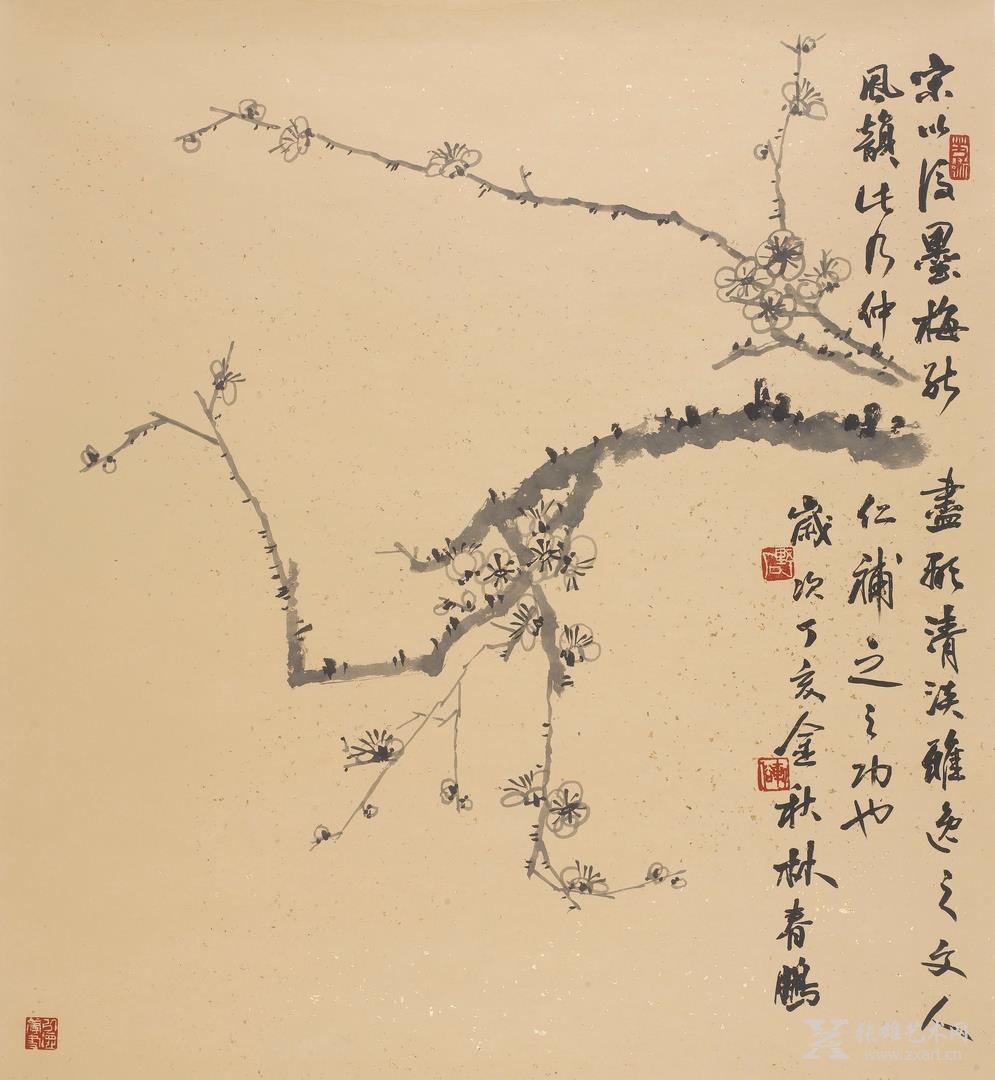 宋以后墨梅能尽形清淡雅逸之文人
风韵此乃仲仁補之之功也
歲次丁亥金秋林春鵬
张雄艺术网
www.zxart.cn